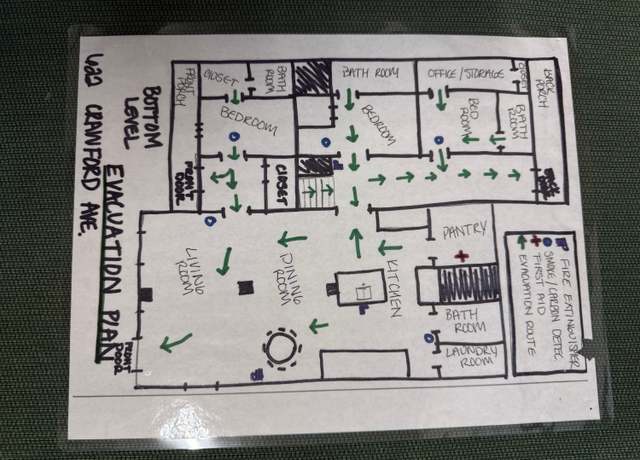 FRONT PORCH
CLOSET
BATH ROOM
BATH ROOM
OFFICE/STORAGE
CLOSET
BACK PORCH
BEDROOM
BEDROOM
BED ROOM
BATH ROOM
BOTTOM LEVEL
FRONT DOOR
CLOSET
EVACUATION PLAN
CRAWFORD AVE.
PANTRY
LIVING ROOM
DINING ROOM
KITCHEN
BATH ROOM
LAUNDRY ROOM
FRONT DOOR
FIRE EXTINGUISHER
SMOKE/CARBON DETEC
FIRST AID
EVACUATION ROUTE